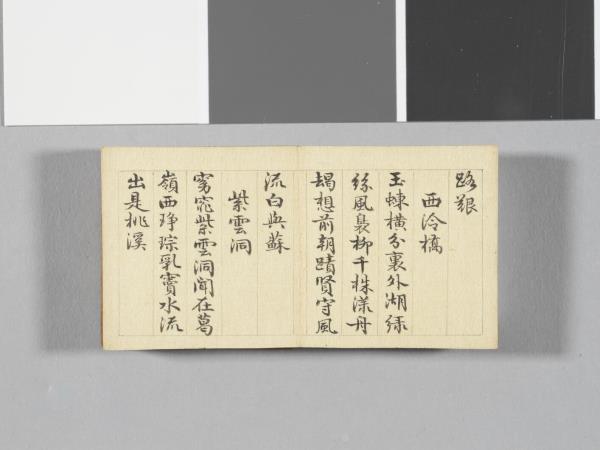 路艱
西泠橋
玉蝀橫分裏外湖緑
絲風裊柳千株漾舟
朅想前朝蹟賢守風
流白與蘇
紫雲洞
窈窕紫雲洞聞在葛
嶺西琤琮乳竇水流
出是桃溪